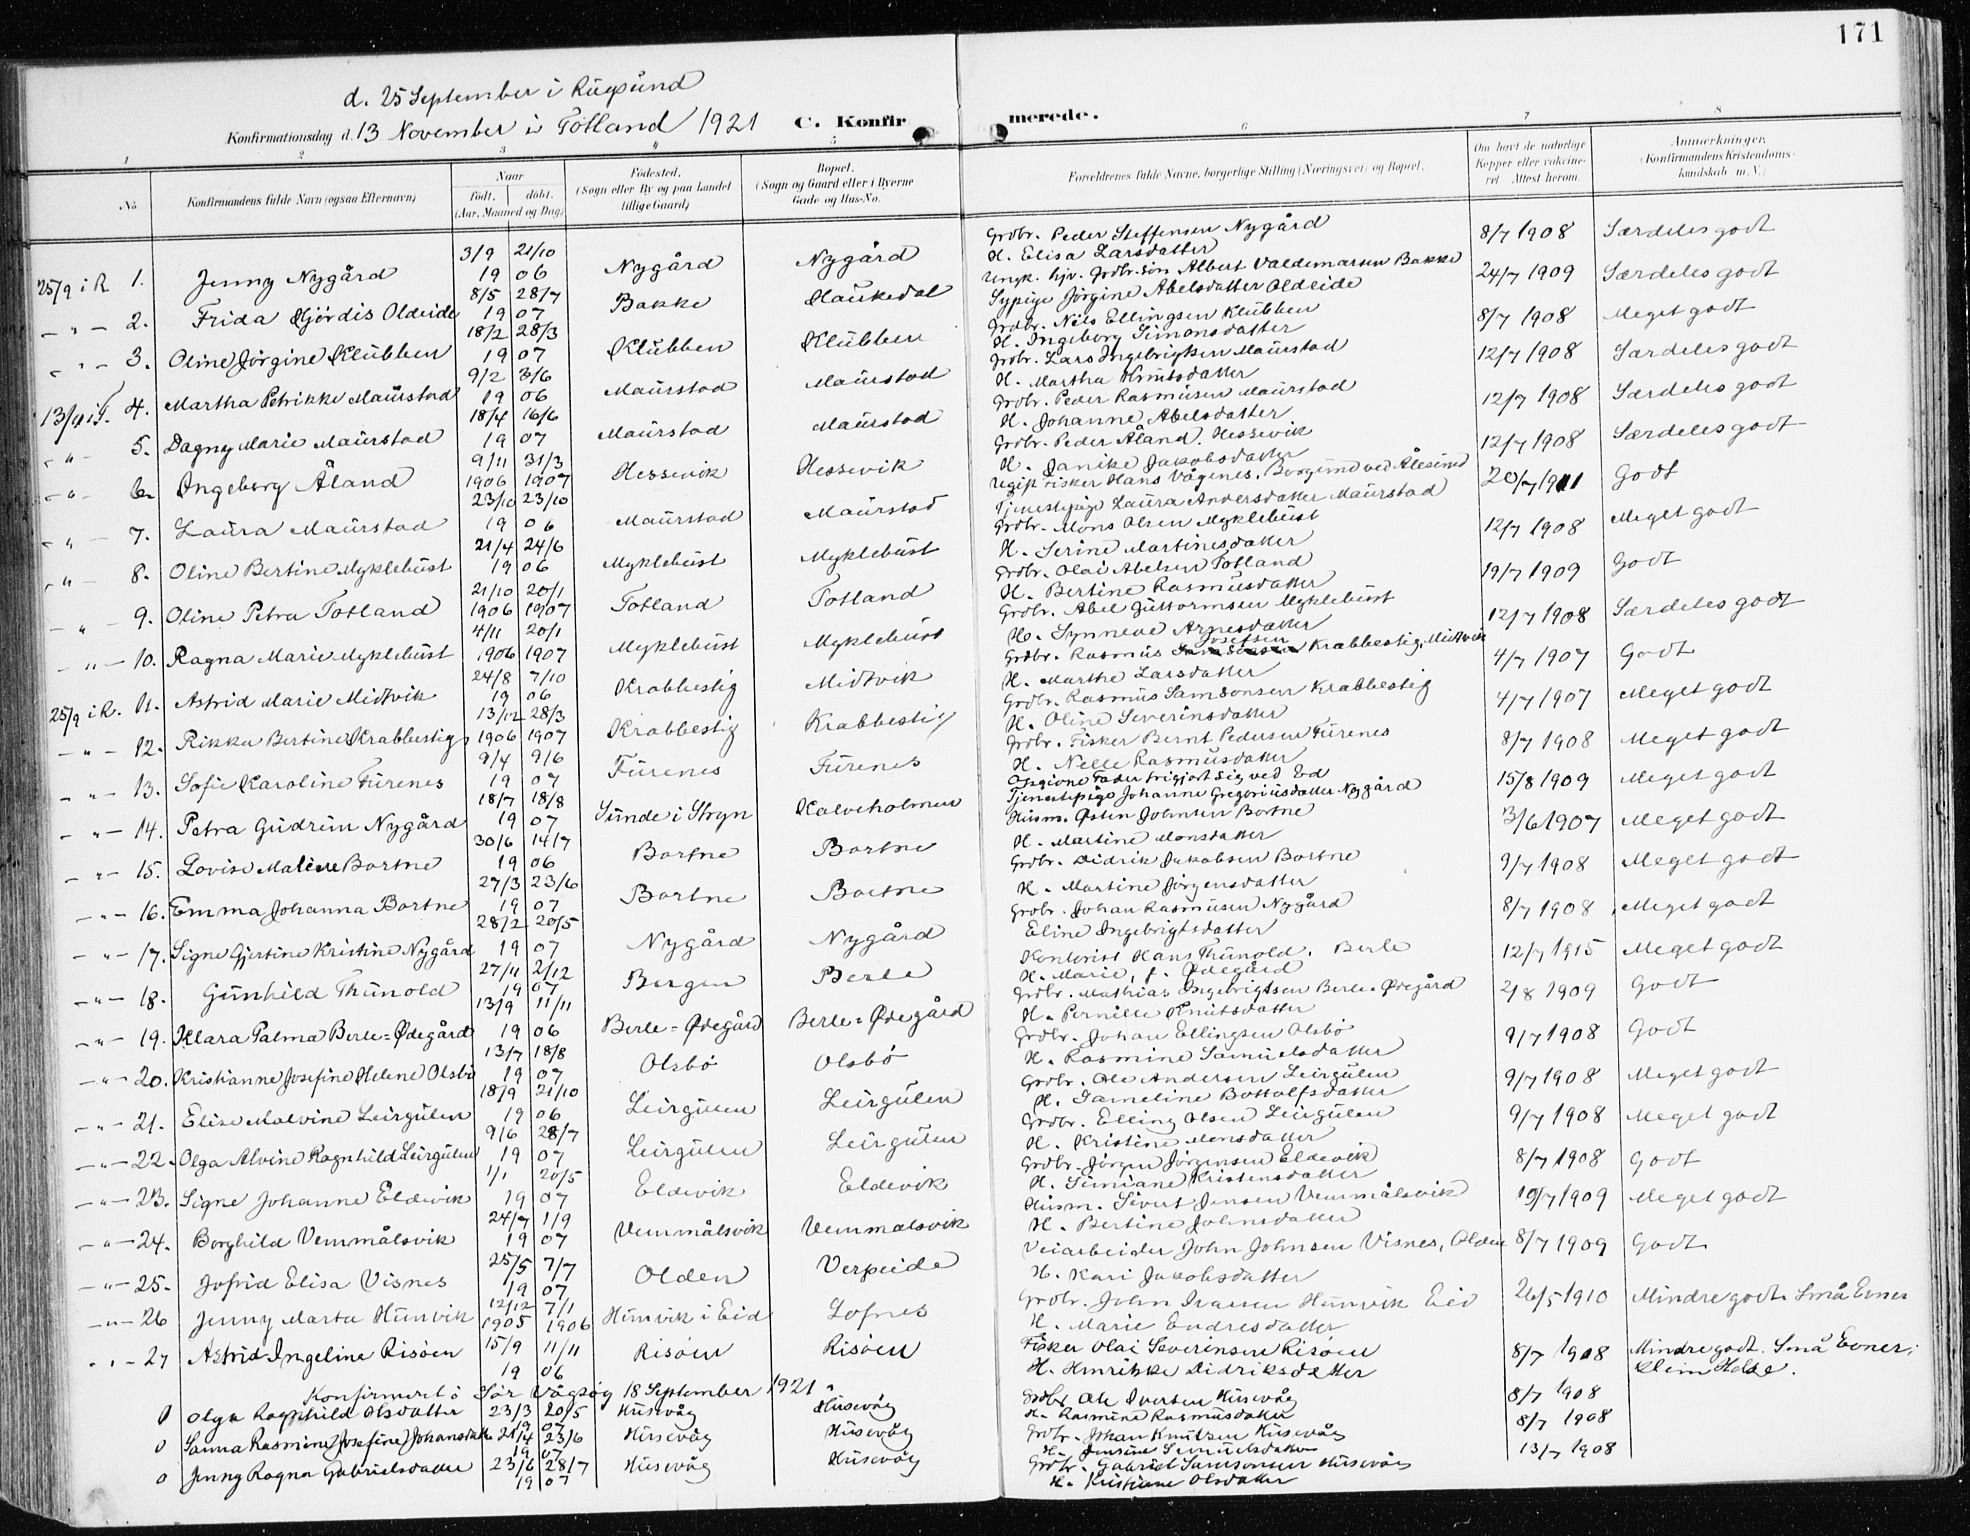 171
d. 25 September i Rugsund
Konfirmationsdag d. 13 November i Totland 1921 C. Konfirmerede.
1 2 3 4 5 6 7 8
No. Konfirmandens fulde Navn (ogsaa Efternavn) Naar født. døbt. (Aar, Maaned og Dag) Fødested. (Sogn eller By og paa Landet tillige Gaard) Bopæl. (Sogn og Gaard eller i Byerne Gade og Hus-No. Forældrenes fulde Navne, borgerlige Stilling (Næringsvei) og Bopæl. Om havt de naturlige Kopper eller vaccineret. Attest herom. Anmærkninger. (Konfirmandens Kristendomskundskab m. V.)
25/9 i R. 1. Jenny Nygård 3/9 1906 21/10 06 Nygård Nygård Grdbr. Peder Steffensen Nygård H. Elisa Larsdatter 8/7 1908 Særdeles godt
- " - 2. Frida Hjördis Oldeide 8/5 28/7 19 07 Bakke Haukedal Ungk. hjv. grdbr.søn Albert Valdemarsen Bakke Sypige Jørgine Abelsdatter Oldeide 24/7 1909 Særdeles godt
- " - 3. Oline Jörgine Klubben 18/2 28/3 19 07 Klubben Klubben Grdbr. Nils Ellingsen Klubben H. Ingeborg Simonsdatter 8/7 1908 Meget godt
13/11 i T. 4. Martha Petrikke Maurstad 9/2 3/6 19 06 Maurstad Maurstad Grdbr. Lars Ingebrigtsen Maurstad H. Martha Knutsdatter 12/7 1908 Særdeles godt
- " - 5. Dagny Marie Maurstad 18/4 16/6 19 07 Maurstad Maurstad Grdbr. Peder Rasmusen Maurstad H. Johanne Abelsdatter 12/7 1908 Særdeles godt
- " - 6. Ingeborg Åland 9/11 31/3 1906 1907 Hessevik Hessevik Grdbr. Peder Åland, Hessevik H. Janike Jakobsdatter 12/7 1908 Særdeles godt
- " - 7. Laura Maurstad 23/10 23/10 19 06 Maurstad Maurstad Ugift fisker Hans Vågenes, Borgund ved Ålesund Tjenestepige Laura Andersdatter Maurstad 20/7 1911 Godt
- " - 8. Oline Bertine Myklebust 21/4 24/6 19 06 Myklebust Myklebust Grdbr. Mons Olsen Myklebust H. Serine Martinesdatter 12/7 1908 Meget godt
- " - 9. Oline Petra Totland 21/10 20/1 1906 1907 Totland Totland Grdbr. Olai Abelsen Totland H. Bertine Rasmusdatter 19/7 1909 Godt
- " - 10. Ragna Marie Myklebust 4/11 20/1 1906 1907 Myklebust Myklebust Grdbr. Abel Guttormsen Myklebust H. Synneve Arnesdatter 12/7 1908 Særdeles godt
25/9 i R. 11. Astrid Marie Midtvik 24/8 7/10 19 06 Krabbestig Midtvik Grdbr. Rasmus Josefsen Krabbestig, Midtvik H. Marthe Larsdatter 4/7 1907 Godt
- " - 12. Rikka Bertine Krabbestig 13/12 28/3 1906 1907 Krabbestig Krabbestig Grdbr. Rasmus Samsonsen Krabbestig H. Oline Severinsdatter 4/7 1907 Meget godt
- " - 13. Sofie Karoline Furenes 9/4 9/6 19 07 Furenes Furenes Grdbr. Fisker Bernt Pedersen Furenes H. Nelle Rasmusdatter 8/7 1908 Meget godt
- " - 14. Petra Gudrun Nygård 18/7 18/8 19 07 Sunde i Stryn Kalveholmen Opgivne Fader frigjort sig ved Ed Tjenestepige Johanne Gregoriusdatter Nygård 15/8 1909 Meget godt
- " - 15. Lovise Malene Bortne 30/6 14/7 19 06 Bortne Bortne Husm. Østen Johnsen Bortne H. Martine Monsdatter 13/6 1907 Meget godt
- " - 16. Emma Johanna Bortne 27/3 23/6 19 07 Bortne Bortne Grdbr. Didrik Jakobsen Bortne H. Martine Jörgensdatter 9/7 1908 Meget godt
- " - 17. Signe Gjertine Kristine Nygård 28/2 20/5 19 07 Nygård Nygård Grdbr. Johan Rasmusen Nygård Eline Ingebrigtsdatter 8/7 1908 Meget godt
- " - 18. Gunhild Thunold 27/11 2/12 19 07 Bergen Berle Kontorist Hans Thunold, Berle H. Marie, f. Ødegård 12/7 1915 Meget godt
- " - 19. Klara Palma Berle=Ødegård 13/9 11/11 19 06 Berle=Ødegård Berle=Ødegård Grdbr. Mathias Ingebrigtsen Berle-Ødegård H. Pernille Knutsdatter 2/8 1909 Godt
- " - 20. Kristianne Josefine Helene Olsbö 13/7 18/8 19 07 Olsbö Olsbö Grdbr. Johan Ellingsen Olsbö H. Rasmine Samuelsdatter 9/7 1908 Godt
- " - 21. Elise Malvine Leirgulen 18/9 21/10 19 06 Leirgulen Leirgulen Grdbr. Ole Andersen Leirgulen H. Jameline Bottolfsdatter 9/7 1908 Meget godt
- " - 22. Olga Alvine Ragnhild Leirgulen 9/6 28/7 19 07 Leirgulen Leirgulen Grdbr. Elling Olsen Leirgulen H. Kristine Monsdatter 9/7 1908 Meget godt
- " - 23. Signe Johanne Eldevik 1/1 20/5 19 07 Eldevik Eldevik Grdbr. Jörgen Jörgensen Eldevik H. Simiane Kristensdatter 8/7 1908 Godt
- " - 24. Borghild Vemmålsvik 24/7 1/9 19 07 Vemmålsvik Vemmålsvik Husm. Sivert Jensen Vemmålsvik H. Bertine Johnsdatter 19/7 1909 Meget godt
- " - 25. Jofrid Elisa Visnes 25/5 7/7 19 07 Olden Verpeide Veiarbeider John Johnsen Visnes, Olden H. Kari Jakobsdatter 8/7 1909 Godt
- " - 26 Jenny Marta Hunvik 12/12 7/1 1905 1906 Hunvik i Eid Lofnes Grdbr. John Ivarsen Hunvik Eid H. Marie Endresdatter 26/5 1910 Mindre godt. Små Evner
- " - 27 Astrid Ingeline Risöen 15/9 11/11 19 06 Risöen Risöen Fisker Olai Severinsen Risöen H. Henrikke Didriksdatter 8/7 1908 Mindre godt. Små Evner;
Konfirmeret i Sör Vågsøy 18 September 1921.
0 Olga Ragnhild Olsdatter 23/3 20/5 19 07 Husevåg Husevåg Grdbr Ole Iversen Husevåg H. Rasmine Rasmusdatter 8/7 1908
0 Sanna Rasmine Josefine Johansdatter 21/4 23/6 19 07 Husevåg Husevåg Grdbr. Johan Knutsen Husevåg H. Jensine Samuelsdatter 8/7 1908
0 Jenny Ragna Gabrielsdatter 23/6 28/7 19 07 Husevåg Husevåg Grdbr. Gabriel Samsonsen Husevåg H. Kristiane Olsdatter 13/7 1908